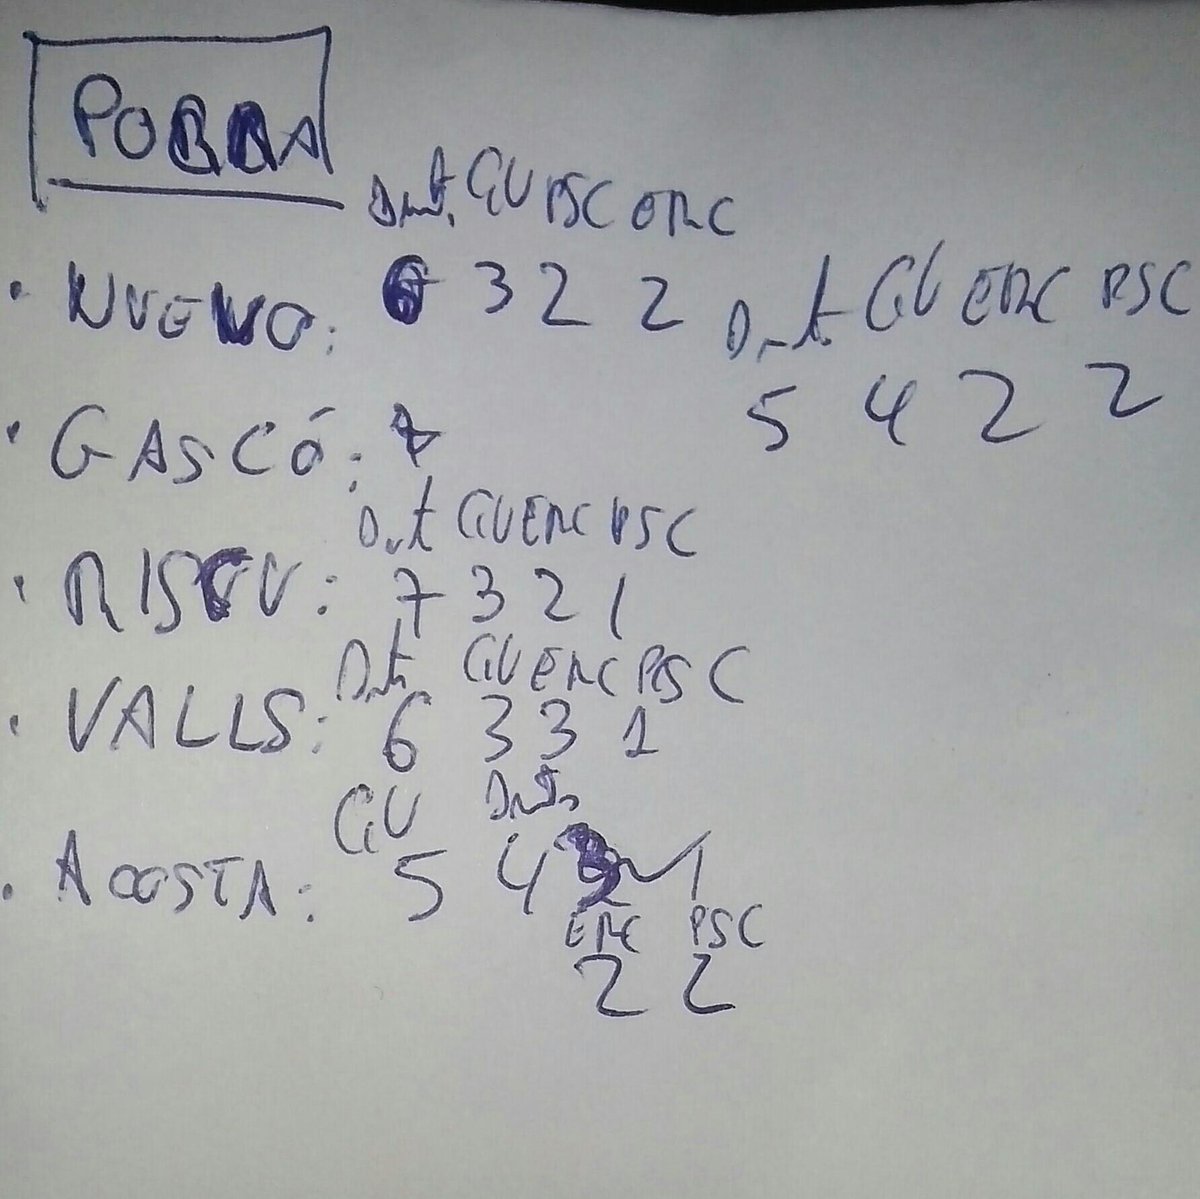 PORRA
Junt. CiU PSC ERC
• NUENO: 6 3 2 2
Junt. CiU ERC PSC
5 4 2 2
• GASCÓ:
CiU ERC PSC
• RISCU: 7 3 2 1
CiU ERC PSC
• VALLS: 6 3 3 1
CiU
• ACOSTA: 5 4
ERC PSC
2 2